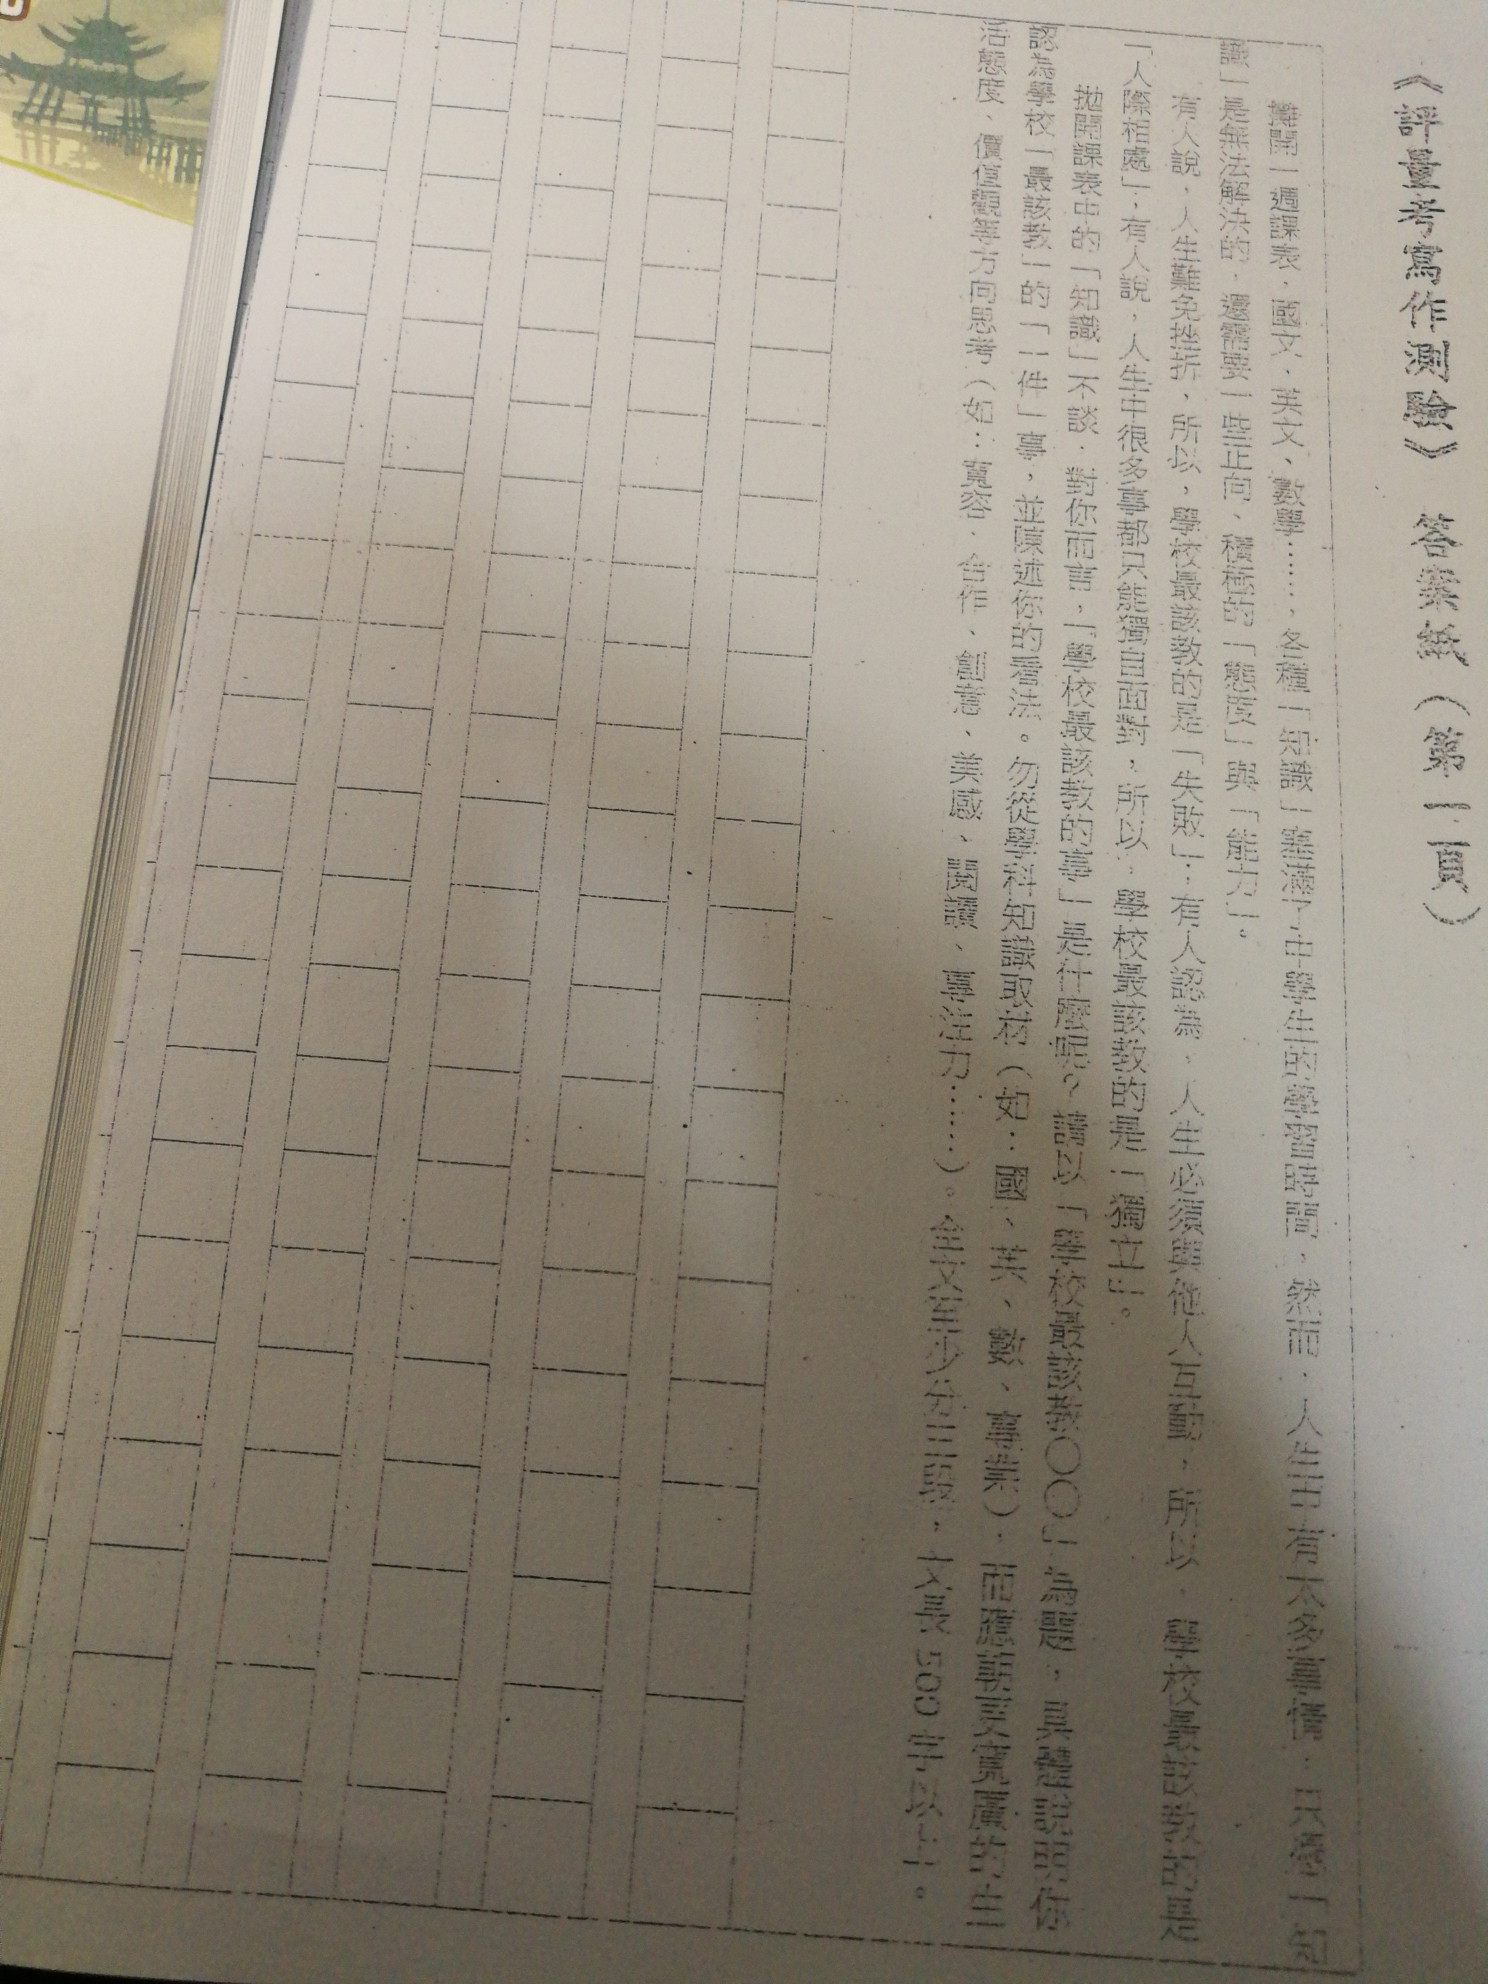 《評量考寫作測驗》 答案紙（第一頁）
攤開一週課表，國文、英文、數學……，各種「知識」塞滿了中學生的學習時間，然而，人生中有太多事情，只憑「知
識」是無法解決的，還需要一些正向、積極的「態度」與「能力」。
有人說，人生難免挫折，所以，學校最該教的是「失敗」；有人認為，人生必須與他人互動，所以，學校最該教的是
「人際相處」；有人說，人生中很多事都只能獨自面對，所以，學校最該教的是「獨立」。
拋開課表中的「知識」不談，對你而言，「學校最該教的事」是什麼呢？請以「學校最該教〇〇」為題，具體說明你
認為學校「最該教」的「一件」事，並陳述你的看法。勿從學科知識取材（如：國、英、數、專業），而應朝更寬廣的生
活態度、價值觀等方向思考（如：寬容、合作、創意、美感、閱讀、專注力……）。全文至少分三段，文長 500 字以上。